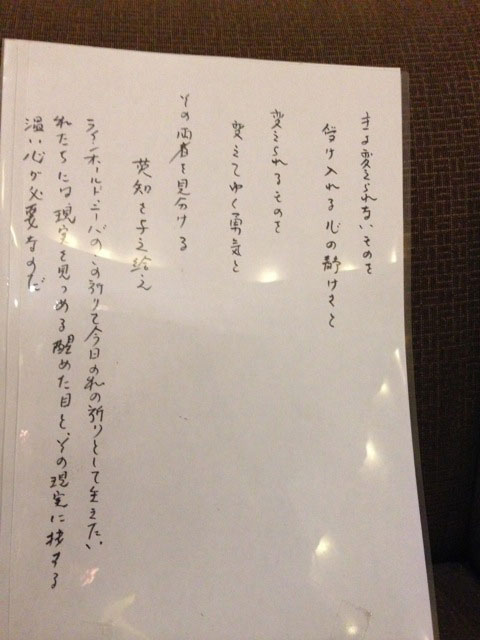 変えられないものを
受け入れる心の静けさと
変えられるものを
変えてゆく勇気と
その両者を見分ける
英知を与え給え
ラインホールド・ニーバのこの祈りを今日の私の祈りとして生きたい
私たちには現実を見つめる醒めた目と、その現実に接する
温い心が必要なのだ